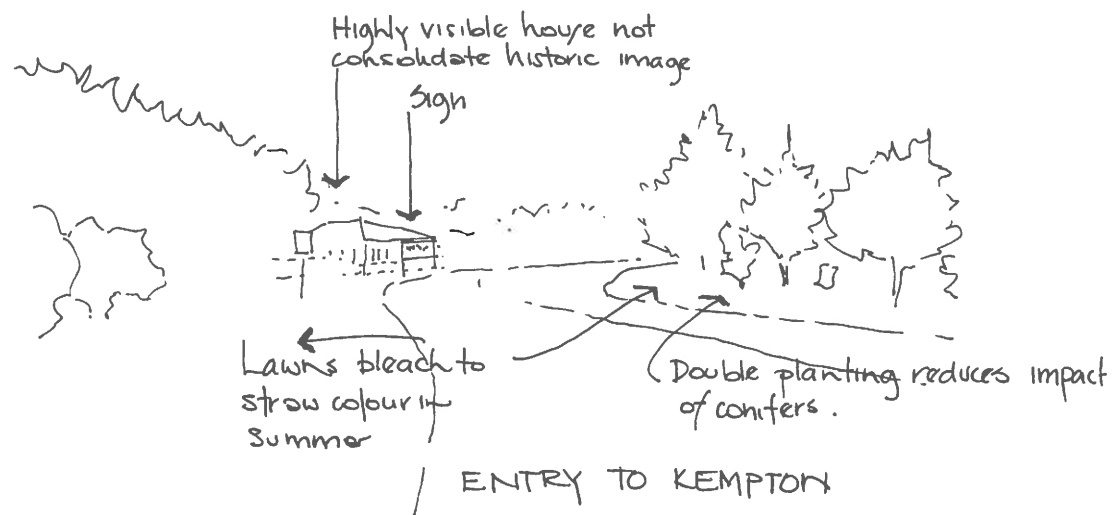 Highly visible house not
consolidate historic image
Sign
Lawns bleach to
straw colour in
Summer
Double planting reduces impact
of conifers.
ENTRY TO KEMPTON